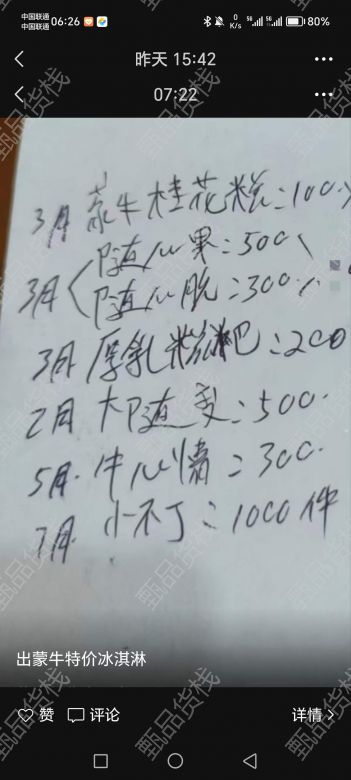 中国联通
中国联通
06:26
0 K/s
80%
昨天 15:42
07:22
3月 蒙牛桂花糍:100
3月 随心果:500
随心脆:300
3月 厚乳糍粑:200
2月 大随变:500
5月 牛心情=300
7月 小布丁:1000件
出蒙牛特价冰淇淋
赞
评论
详情
甄品货栈